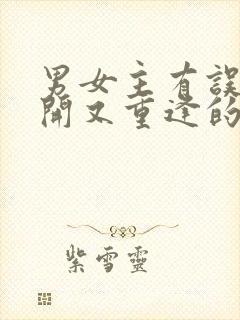 男女主有誤
開又重逢的
紫雪靈